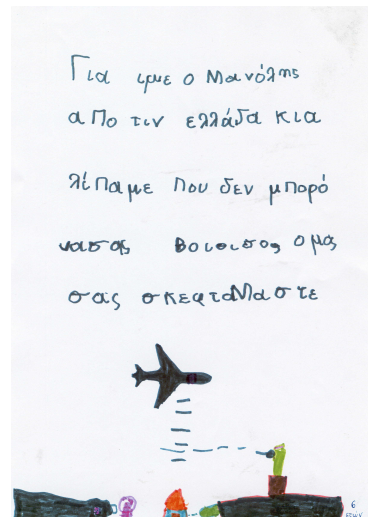 Για ιμε ο Μανόλης
αΠο τιν ελλάδα κια
λίΠαμε Που δεν μπορό
νασας βοιοισοσ ομας
σας σκεφταΜαστε
6
ετών